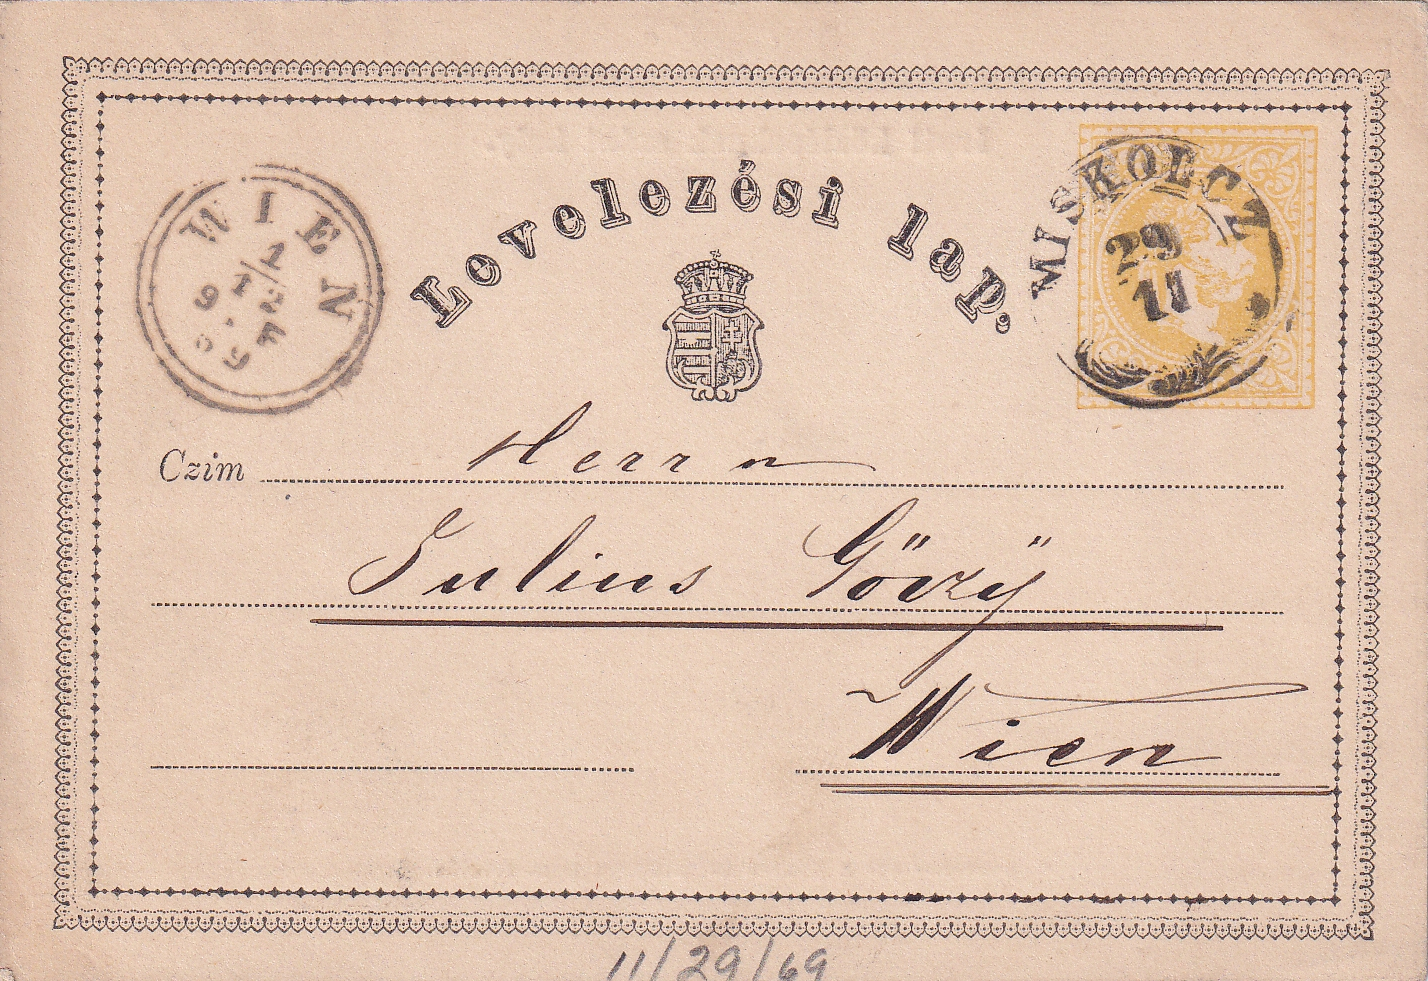 Levelezési lap.
WIEN
1/12
MISKOLCZ
29
11
Czim
Herrn
Julius Göözÿ
Wien
11/29/69